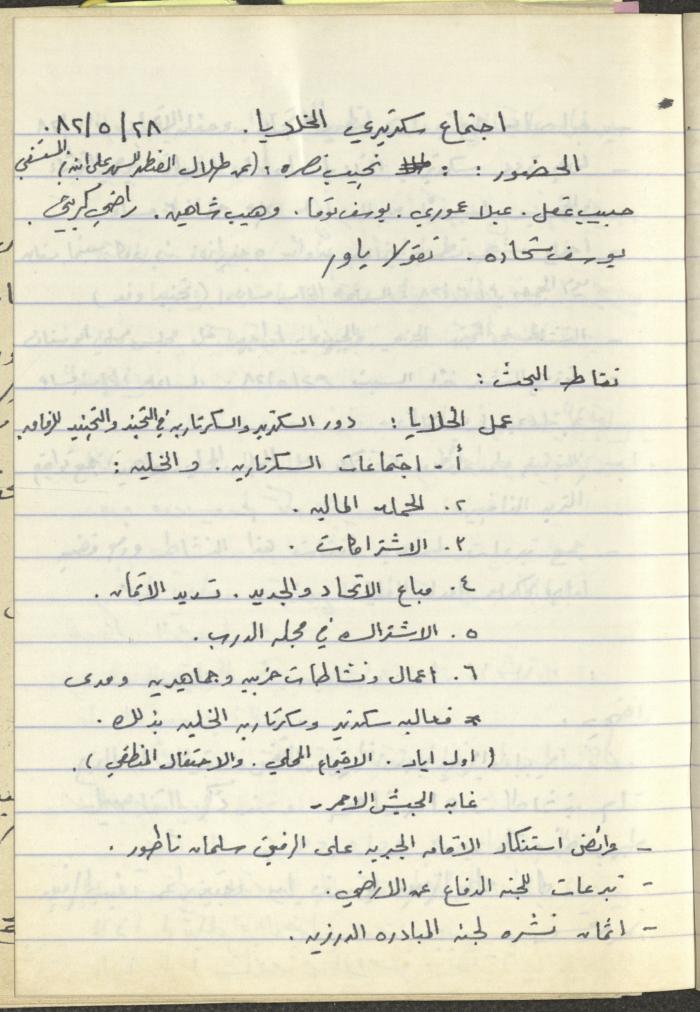 اجتماع سكرتيري الخلايا. ٢٨/٥/٨٢.
الحضور : : نجيب نصره، (عن طلال المستشفى)
حبيب عقل. عبلا عموري. يوسف توما. وهيب شاهين. راضي كريني.
يوسف شحاده. نقولا ياور
نقاط البحث :
عمل الخلايا : دور السكرتير والسكرتاريه في التجند والتجنيد للإقامه
أ- اجتماعات السكرتاريه. و الخليه :
٢. الحمله الماليه.
٣. الاشتراكات.
٤. مباع الاتحاد والجديد. تسديد الاثمان.
٥. الاشتراك في مجله الدرب.
٦. اعمال ونشاطات حزبيه وجماهيريه ومدى
فعاليه سكرتير وسكرتاريه الخليه بذلك.
(اول ايار. الاجتماع المحلي. والاحتفال المنطقي).
غابه الجيش الاحمر-
- عرائض استنكار الاقامه الجبريه على الرفيق سلمان ناطور.
- تبرعات للجنه الدفاع عن الاراضي.
- اثمان نشره لجنه المبادره الدرزيه.